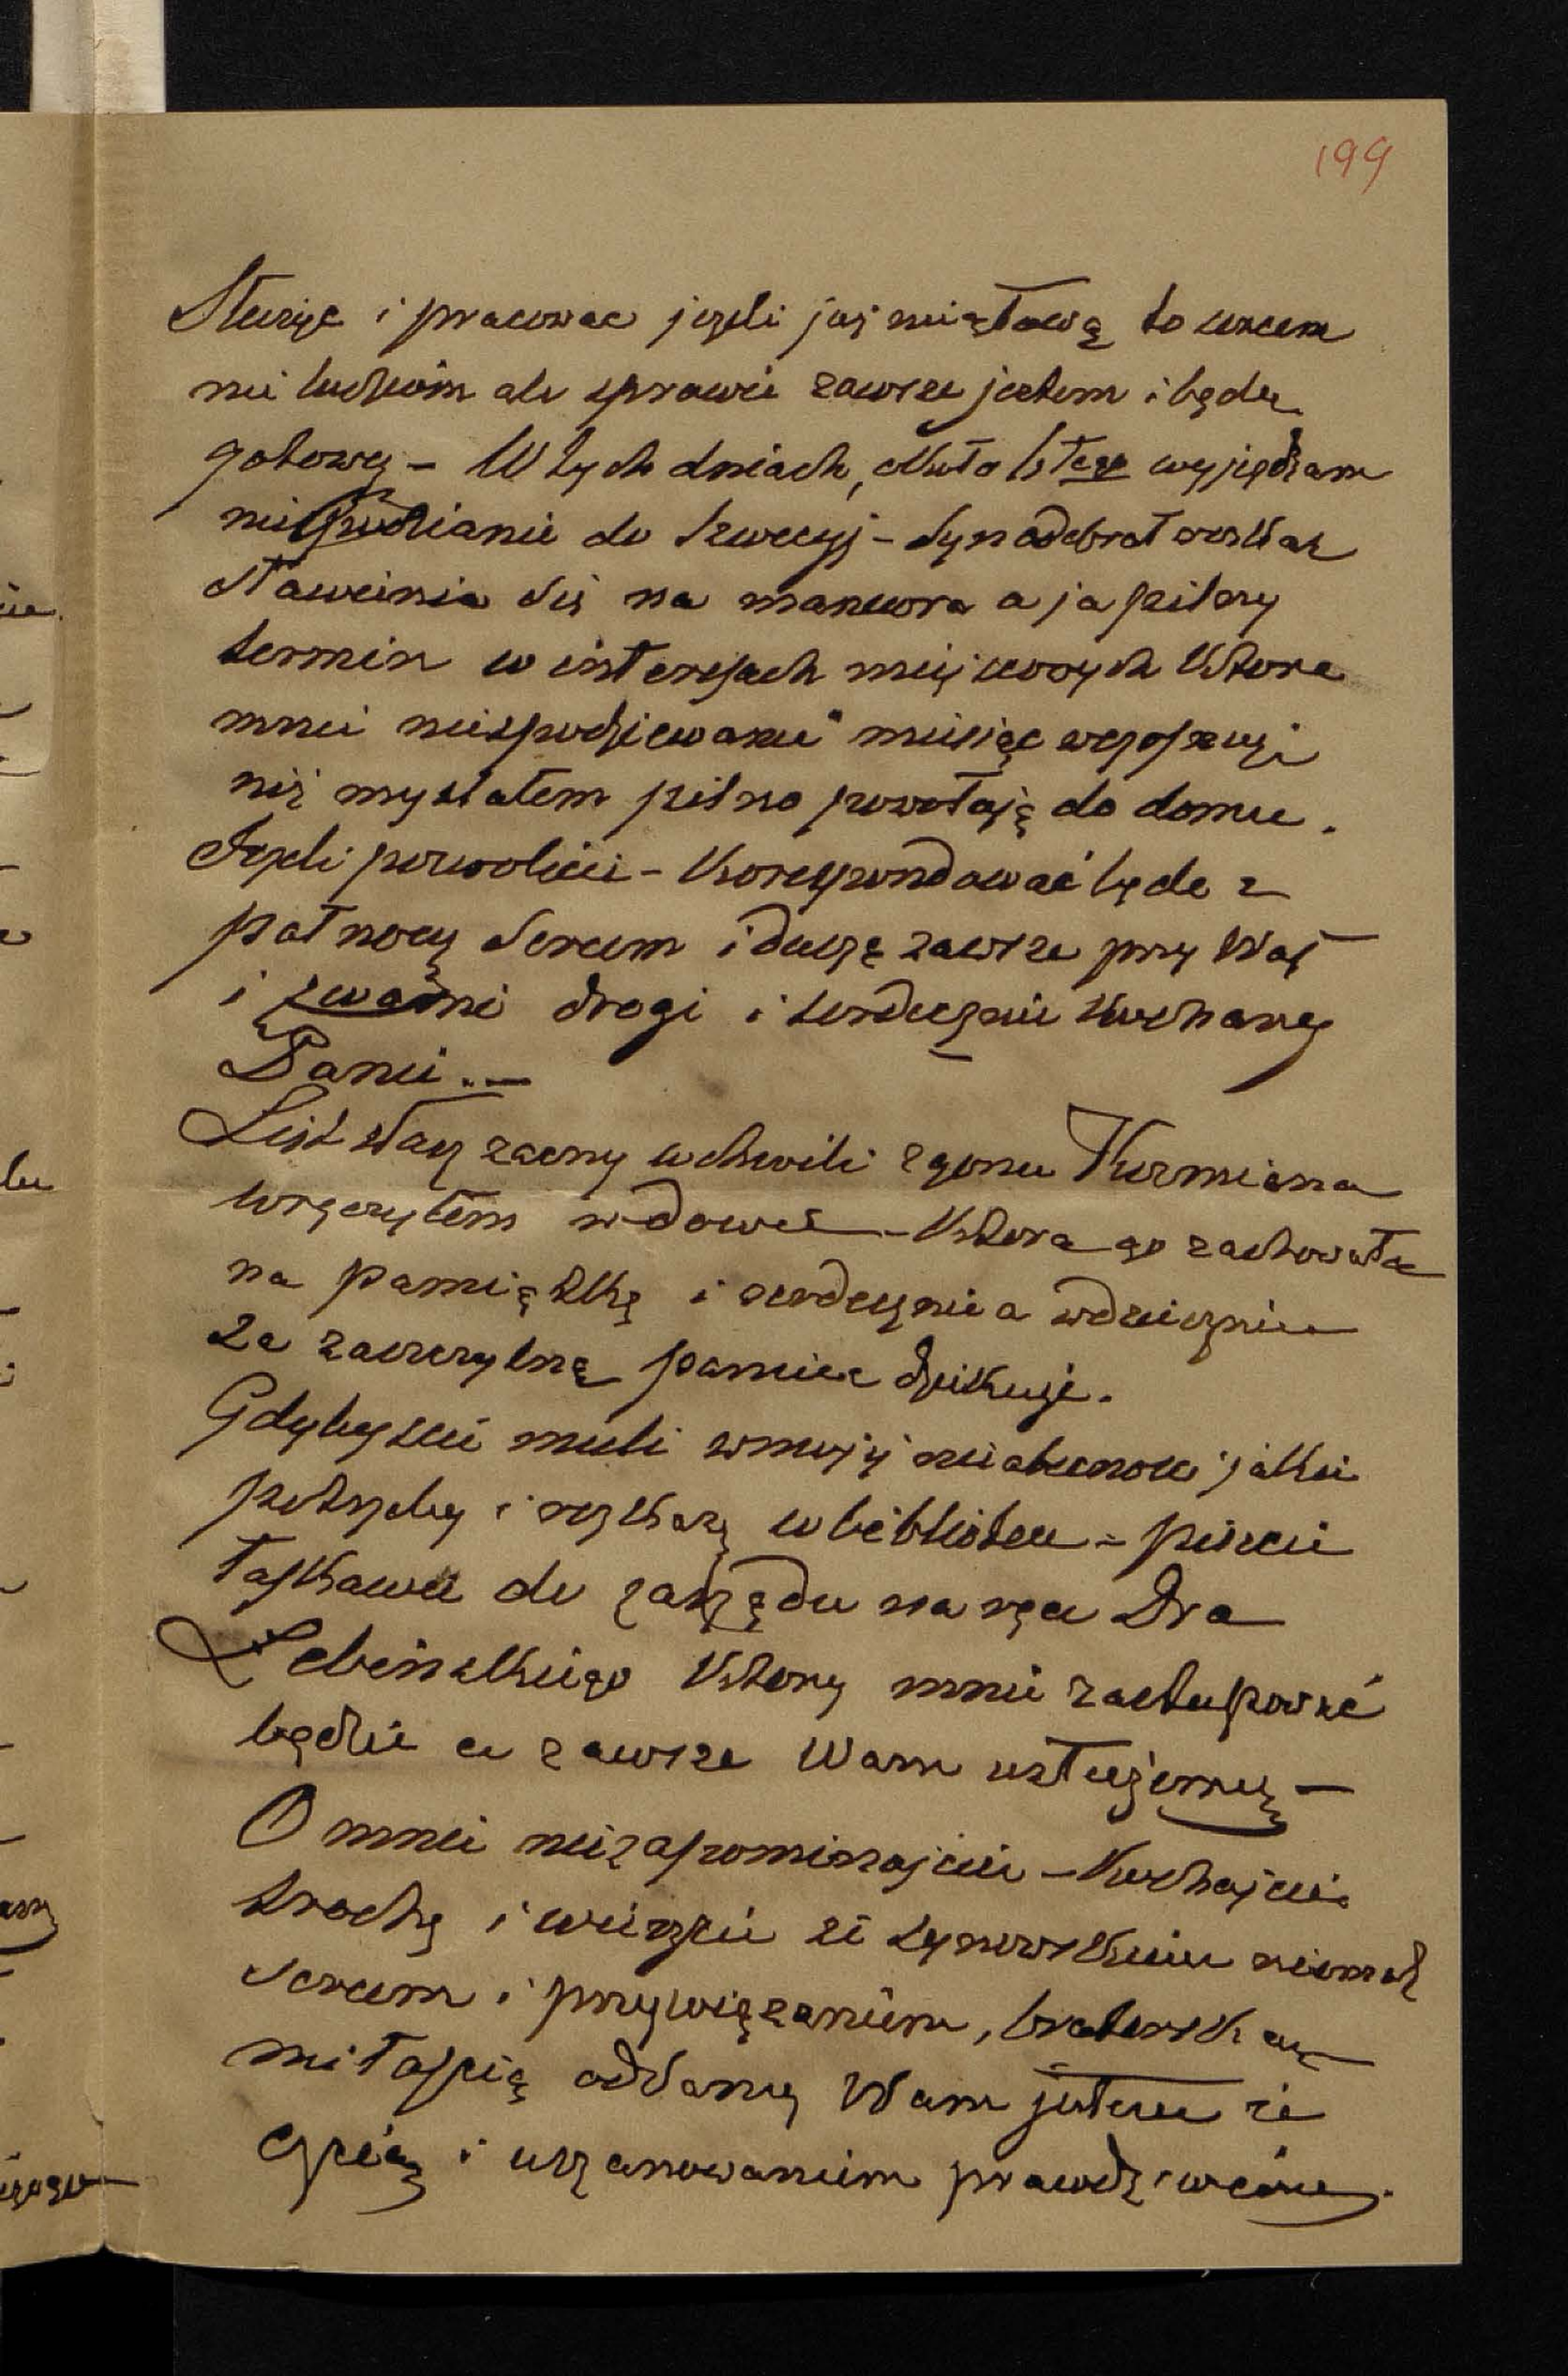 199
Służyć i pracować jeżeli już nie głową to sercem
nie ludziom ale sprawie zawsze jestem i będę
gotowy – W tych dniach, około 15tego wyjeżdżam
niespodzianie do Szwecyj – Syn odebrał rozkaz
stawienia się na manewra a ja pilny
termin w interesach miejscowych które
mnie niespodziewanie miesiąc wcześniej
niż myślałem pilno powołają do domu.
Jeżeli pozwolicie – korespondować będę z
północy sercem i duszą zawsze przy Was
i z wami drogi i serdecznie kochany
Panie. –
List Wasz zacny w chwili zgonu Kuzmiana
wręczyłem wdowie – która go zachowała
na pamiątkę i serdecznie a wdzięcznie
za zaszczytną pamięć dziękuje.
Gdybyście mieli w mojej nieobecności jakie
potrzeby i rozkazy w bibliotece – piszcie
łaskawie do zarządu na ręce Dra
Łebińskiego który mnie zastępować
będzie a zawsze Wam usłużemy –
O mnie niezapominajcie – Kochajcie
trochę i wierzcie że synowskiem niemal
sercem i przywiązaniem, braterską
miłością oddany Wam jestem ze
czcią i uszanowaniem prawdziwem.